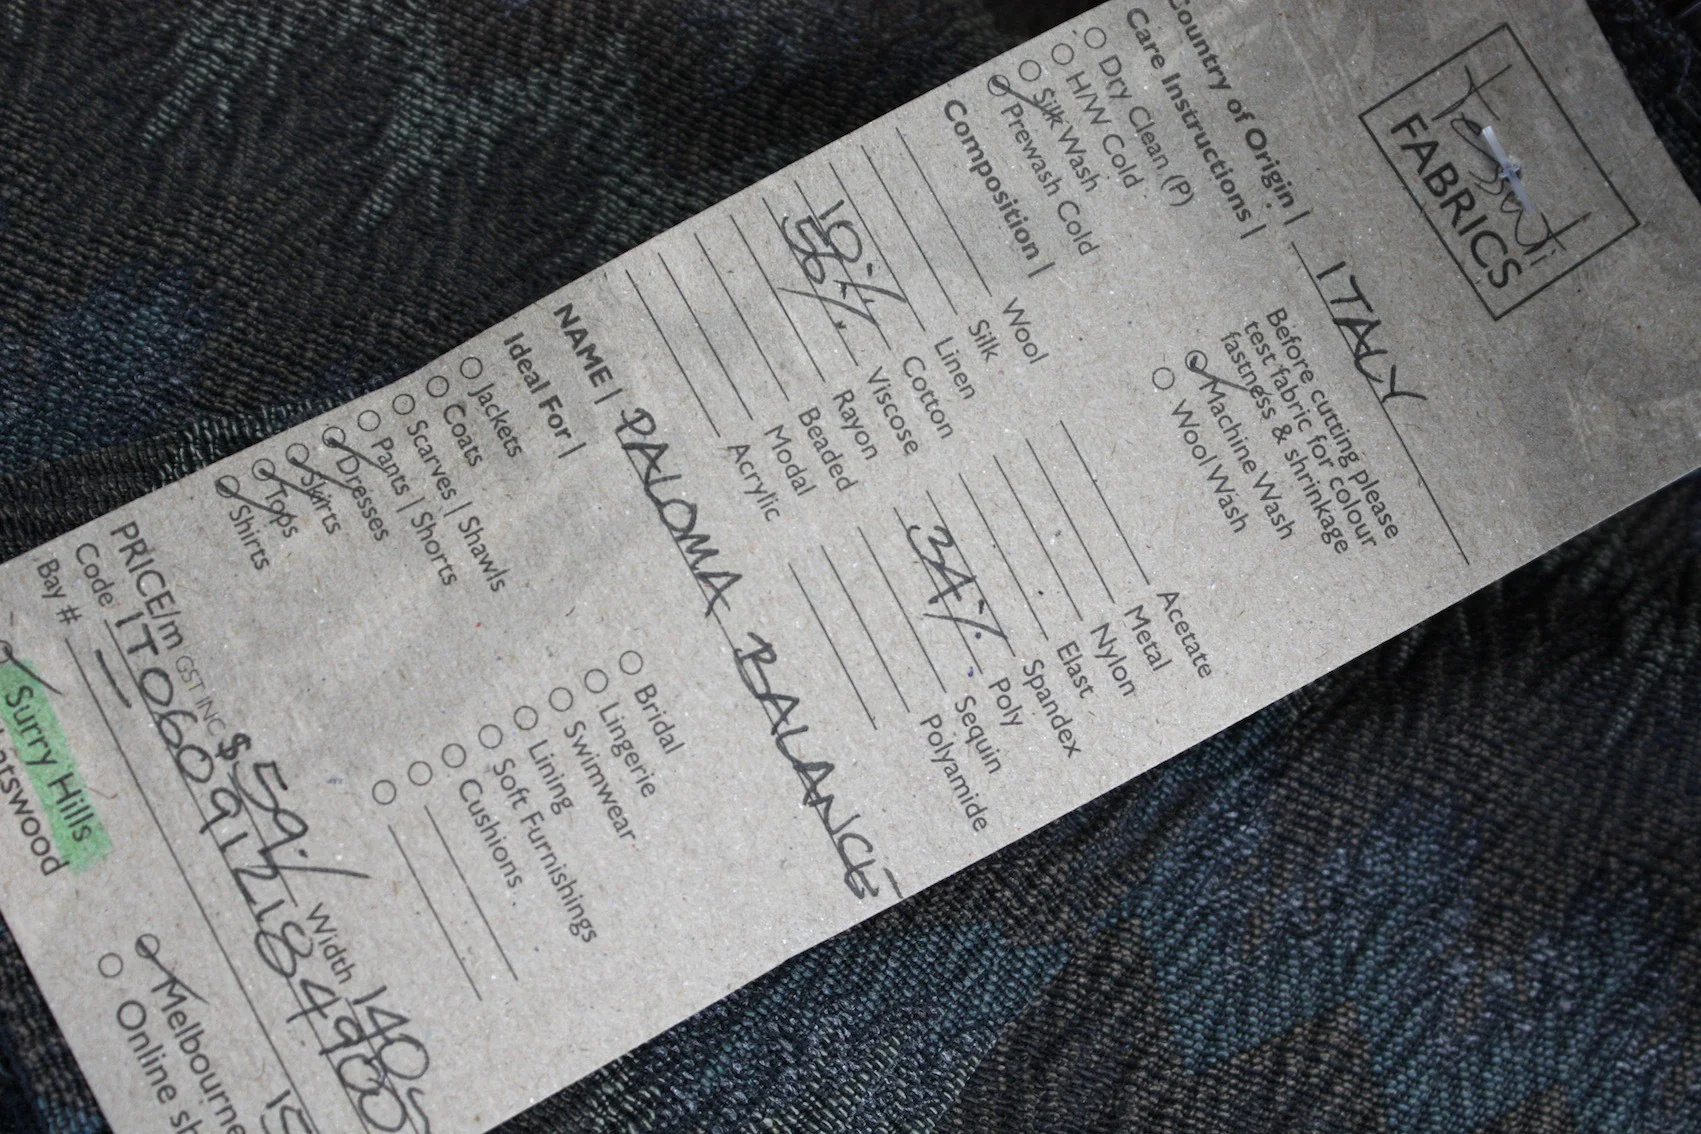 Tessuti
FABRICS
Country of Origin | ITALY
Care Instructions |
Dry Clean (P)
H/W Cold
Silk Wash
Prewash Cold
Before cutting please
test fabric for colour
fastness & shrinkage
Machine Wash
Wool Wash
Composition |
Wool
Silk
Linen
10% Cotton
56% Viscose
Rayon
Beaded
Modal
Acrylic
Acetate
Metal
Nylon
Elast
Spandex
34% Poly
Sequin
Polyamide
NAME | PALOMA BALANCE
Ideal For |
Jackets
Coats
Scarves | Shawls
Pants | Shorts
Dresses
Skirts
Tops
Shirts
Bridal
Lingerie
Swimwear
Lining
Soft Furnishings
Cushions
PRICE/m GST INC $59.⁄ Width 140
Code ITO60912184900
Bay #
Surry Hills
Melbourne
Online